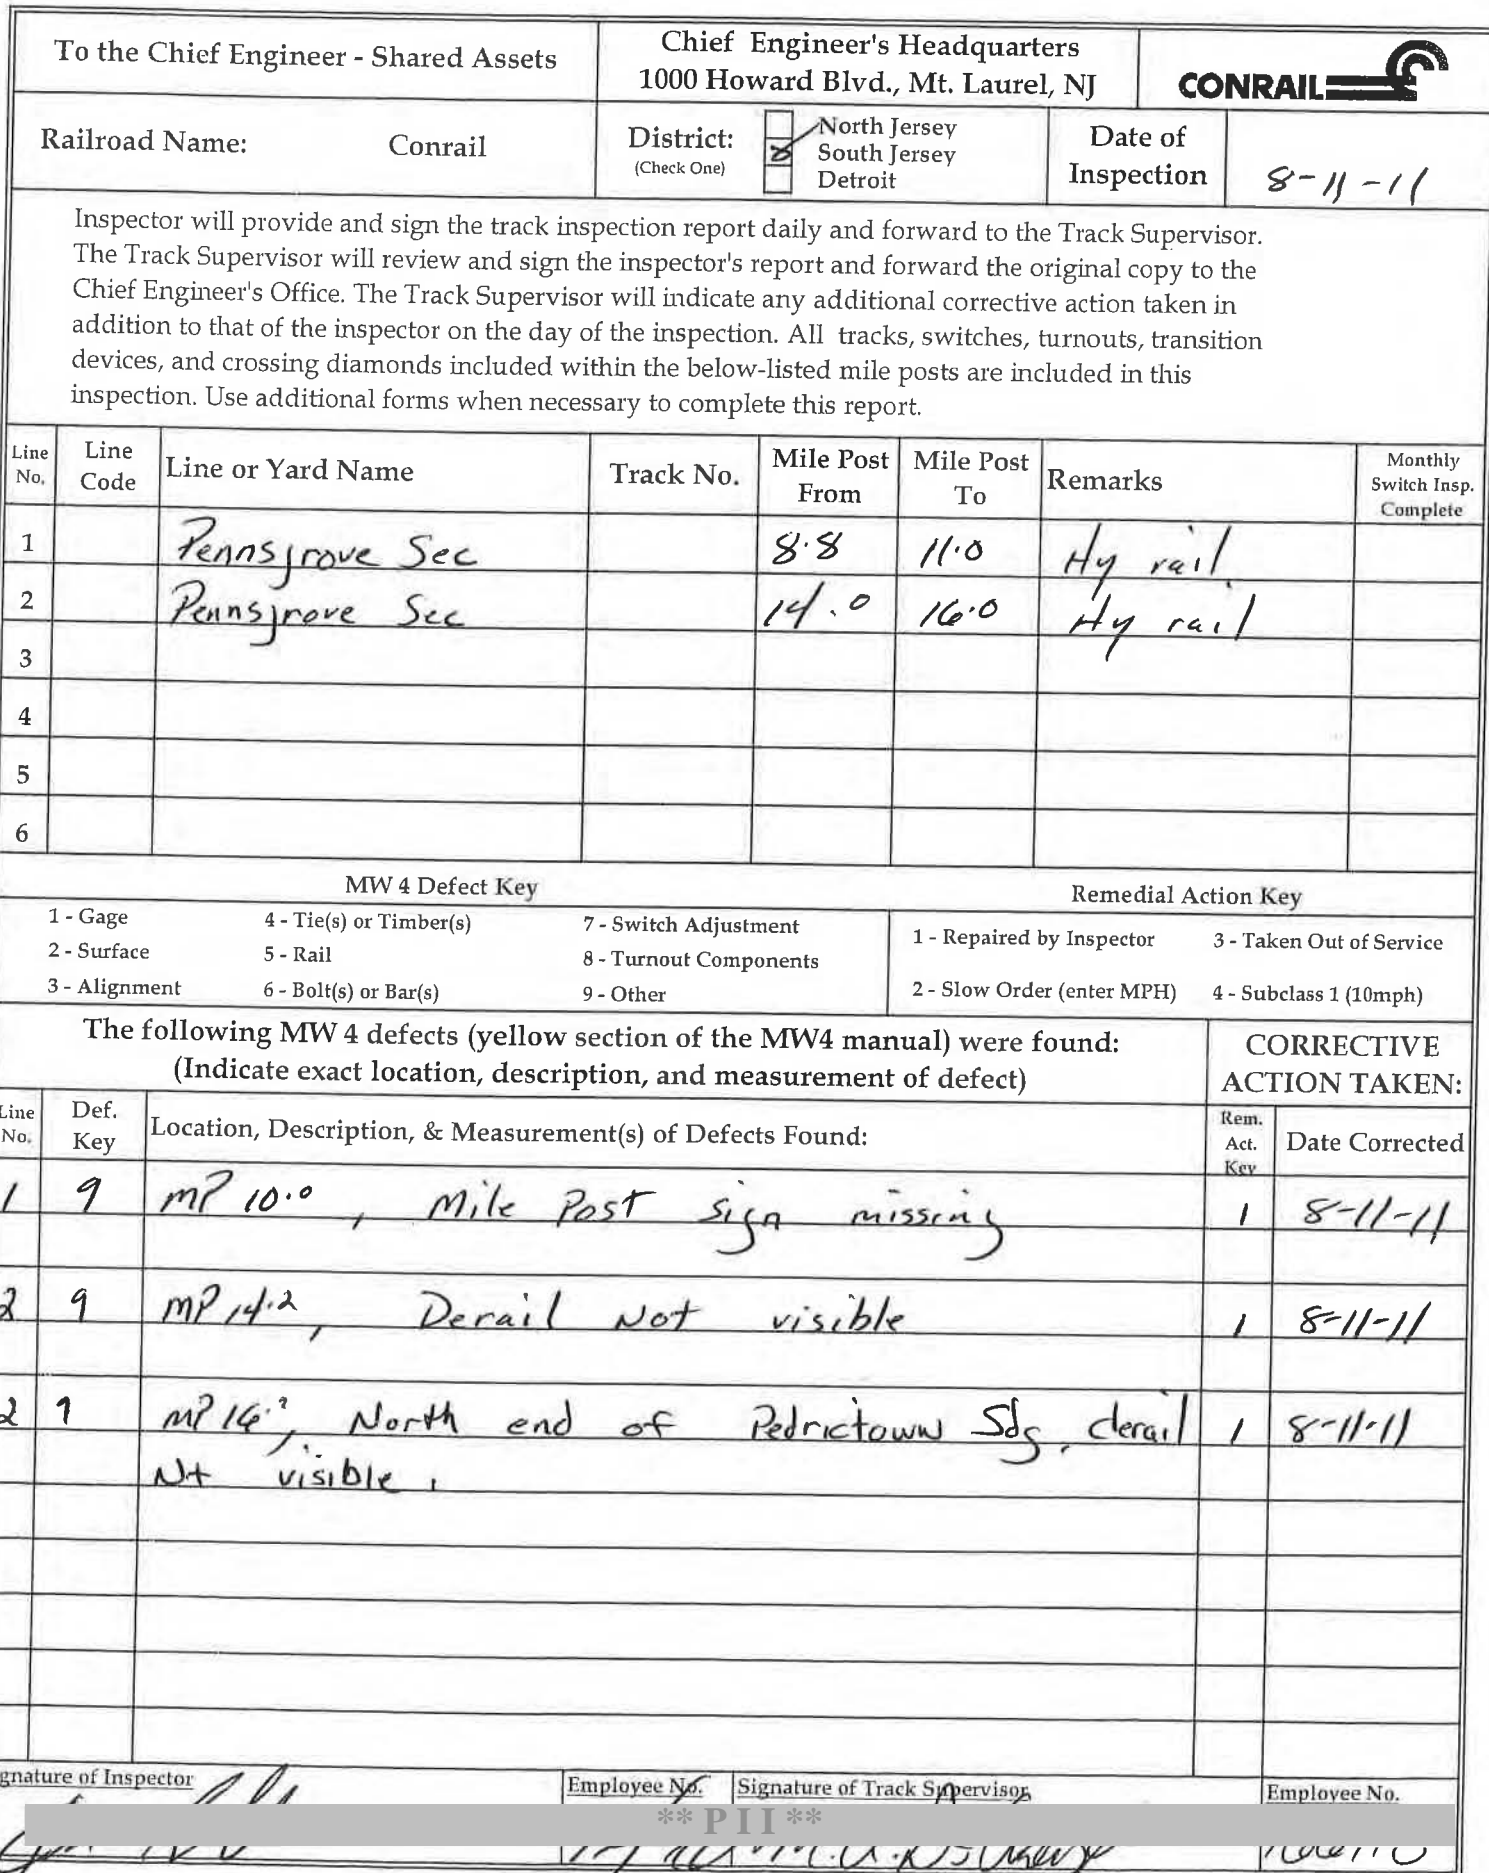 To the Chief Engineer - Shared Assets
Chief Engineer's Headquarters
1000 Howard Blvd., Mt. Laurel, NJ
CONRAIL
Railroad Name: Conrail
District:
(Check One)
North Jersey
South Jersey
Detroit
Date of
Inspection
8-11-11
Inspector will provide and sign the track inspection report daily and forward to the Track Supervisor.
The Track Supervisor will review and sign the inspector's report and forward the original copy to the
Chief Engineer's Office. The Track Supervisor will indicate any additional corrective action taken in
addition to that of the inspector on the day of the inspection. All tracks, switches, turnouts, transition
devices, and crossing diamonds included within the below-listed mile posts are included in this
inspection. Use additional forms when necessary to complete this report.
Line No. Line Code Line or Yard Name Track No. Mile Post From Mile Post To Remarks Monthly Switch Insp. Complete
1 Pennsgrove Sec 8.8 11.0 Hy rail
2 Pennsgrove Sec 14.0 16.0 Hy rail
3
4
5
6
MW 4 Defect Key Remedial Action Key
1 - Gage 4 - Tie(s) or Timber(s) 7 - Switch Adjustment 1 - Repaired by Inspector 3 - Taken Out of Service
2 - Surface 5 - Rail 8 - Turnout Components
3 - Alignment 6 - Bolt(s) or Bar(s) 9 - Other 2 - Slow Order (enter MPH) 4 - Subclass 1 (10mph)
The following MW 4 defects (yellow section of the MW4 manual) were found:
(Indicate exact location, description, and measurement of defect)
CORRECTIVE
ACTION TAKEN:
Line No. Def. Key Location, Description, & Measurement(s) of Defects Found: Rem. Act. Key Date Corrected
1 9 MP 10.0, Mile Post sign missing 1 8-11-11
2 9 MP 14.2, Derail Not visible 1 8-11-11
2 9 North end of Pedrictown Sdg, derail 1 8-11-11
Nt visible.
gnature of Inspector Employee No. Signature of Track Supervisor Employee No.
** P I I **